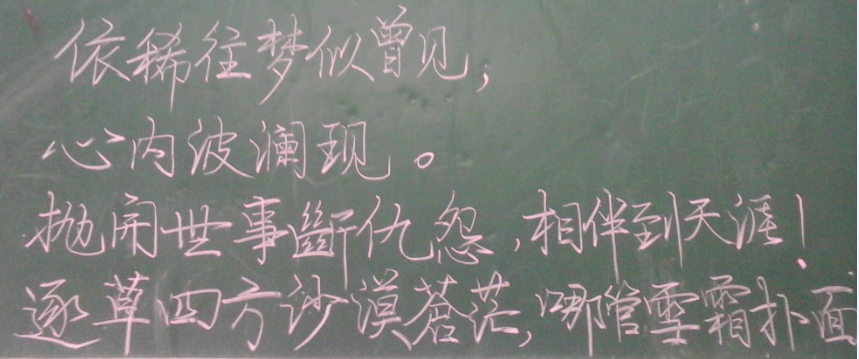 依稀往梦似曾见，
心内波澜现。
抛开世事斷仇怨，相伴到天涯！
逐草四方沙漠苍茫，哪管雪霜扑面